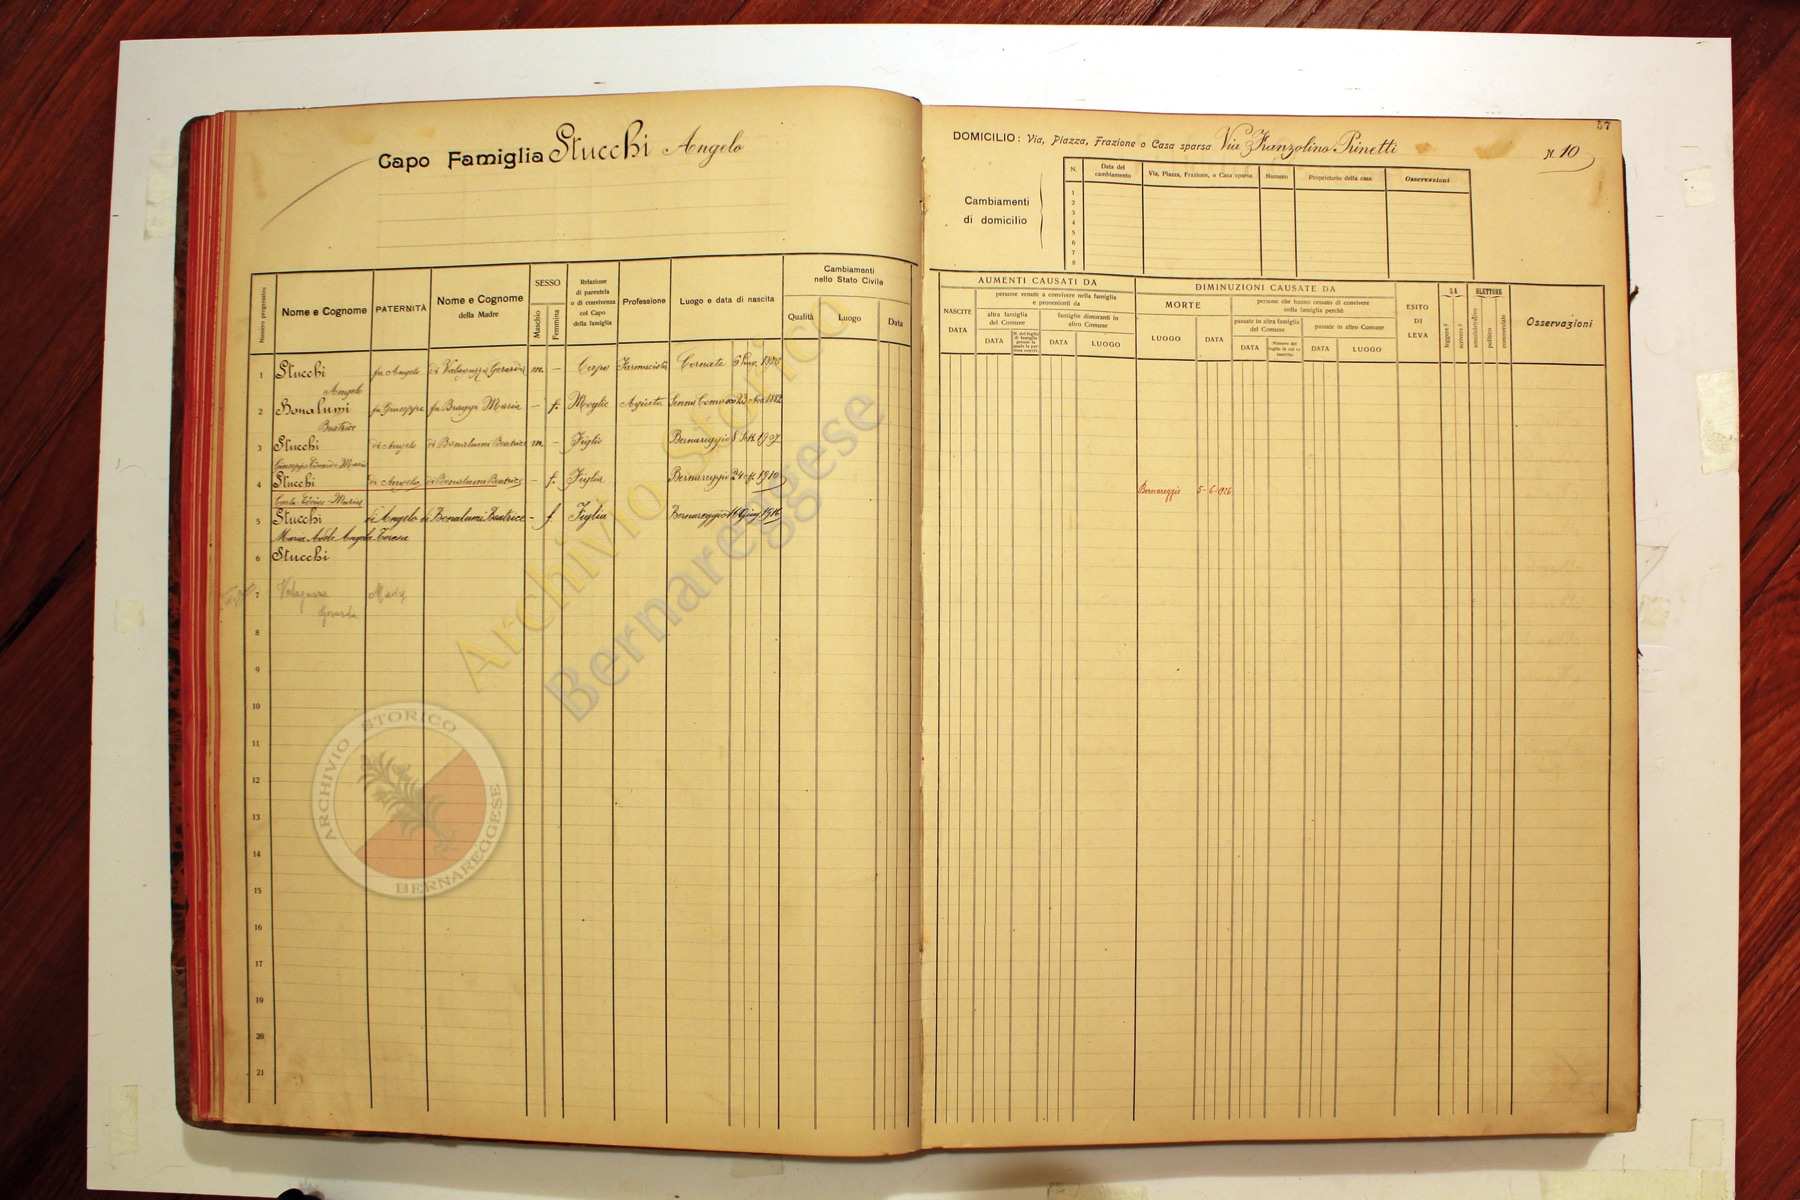 Capo Famiglia Stucchi Angelo
Numero progressivo
Nome e Cognome
PATERNITÀ
Nome e Cognome
della Madre
SESSO
Maschio
Femmina
Relazione
di parentela
o di convivenza
col Capo
della famiglia
Professione
Luogo e data di nascita
Cambiamenti
nello Stato Civile
Qualità
Luogo
Data
1 Stucchi fu Angelo di Gerarda m. - Capo Farmacista Cornate
Angelo
2 Bonalumi fu Giuseppe fu Maria - f. Moglie Agiata 23 1882
Beatrice
3 Stucchi di Angelo di Bonalumi Beatrice m. - Figlio Bernareggio 1907
Maria
4 Stucchi di Angelo di Bonalumi Beatrice - f. Figlia Bernareggio 24 1910
Maria
5 Stucchi di Angelo di Bonalumi Beatrice - f. Figlia Bernareggio 16 Giug. 1916
Maria Adele Angela Teresa
6 Stucchi
7 Valagussa
Gerarda
8
9
10
11
12
13
14
15
16
17
19
20
21
57
DOMICILIO: Via, Piazza, Frazione o Casa sparsa Via Franzolino Prinetti
N. 10
Cambiamenti
di domicilio
N.
Data del
cambiamento
Via, Piazza, Frazione, o Casa sparsa
Numero
Proprietario della casa
Osservazioni
1
2
3
4
5
6
7
8
AUMENTI CAUSATI DA
NASCITE
DATA
persone venute a convivere nella famiglia
e provenienti da
altra famiglia
del Comune
DATA
famiglie dimoranti in
altro Comune
DATA
LUOGO
DIMINUZIONI CAUSATE DA
MORTE
LUOGO
DATA
persone che hanno cessato di convivere
colla famiglia perchè
passate in altra famiglia
del Comune
DATA
passate in altro Comune
DATA
LUOGO
ESITO
DI
LEVA
SA
leggere?
scrivere?
ELETTORE
amministrativo
politico
commerciale
Osservazioni
Bernareggio 5-6-1926
Archivio Storico
Bernareggese
ARCHIVIO STORICO
BERNAREGGESE